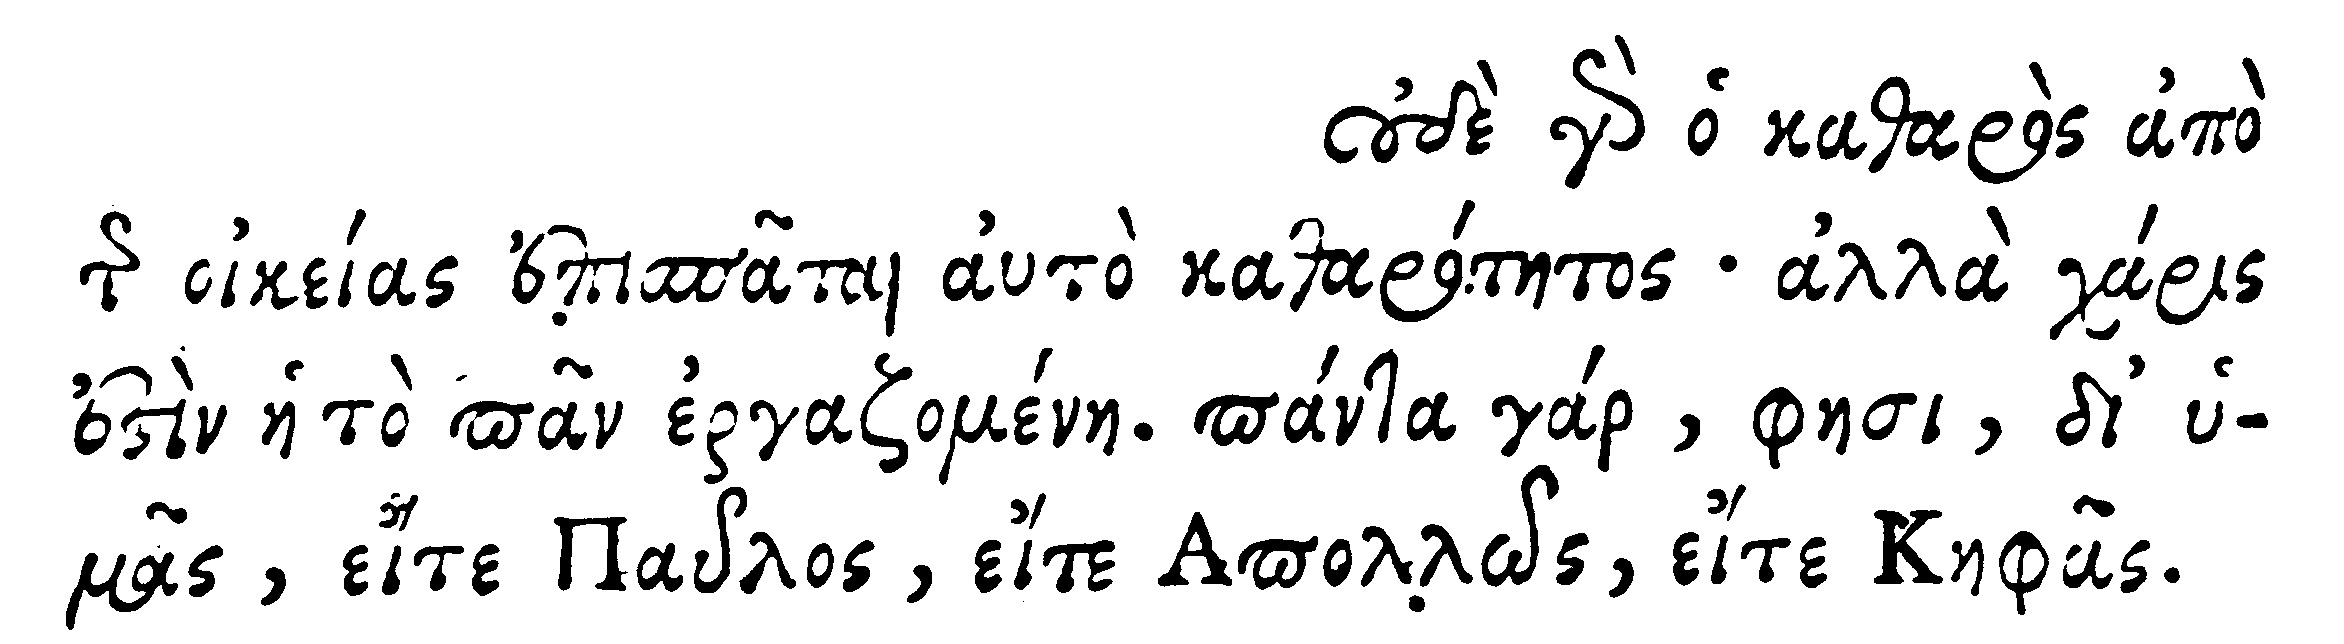 οὐδὲ γὰρ ὁ καθαρὸς ἀπὸ
τῆς οἰκείας ἐπισπᾶται αὐτὸ καθαρότητος · ἀλλὰ χάρις
ἐστὶν ἡ τὸ πᾶν ἐργαζομένη. πάντα γάρ, φησι, δι᾽ ὑ-
μᾶς, εἴτε Παῦλος, εἴτε Απολλῶς, εἴτε Κηφᾶς.